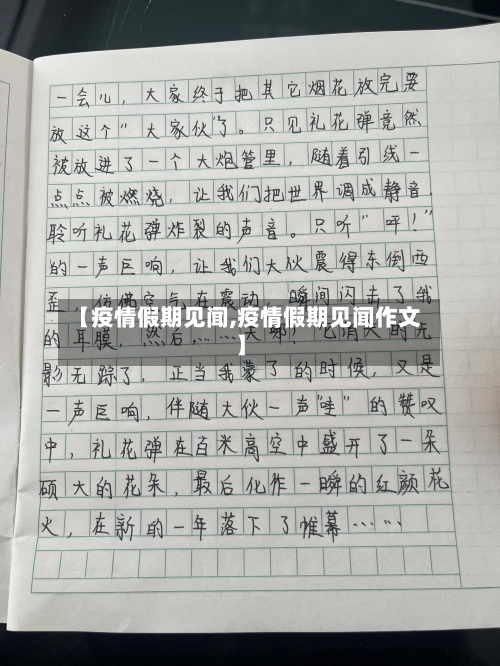 一会儿，大家终于把其它烟花放完要
放这个"大家伙"了。只见礼花弹竟然
被放进了一个大炮管里，随着引线一
点点被燃烧，让我们把世界调成静音，
聆听礼花弹炸裂的声音。只听"呯！"
的一声巨响，让我们大伙震得东倒西
歪，仿佛空气在震动，瞬间闪击了我
【疫情假期见闻,疫情假期见闻作文
】
的耳膜，然后……天哪！它消失的无
影无踪了，正当我蒙了的时候，又是
一声巨响，伴随大伙一声"哇"的赞叹
中，礼花弹在百米高空中盛开了一朵
硕大的花朵，最后化作一瞬的红颜花
火，在新的一年落下了帷幕……